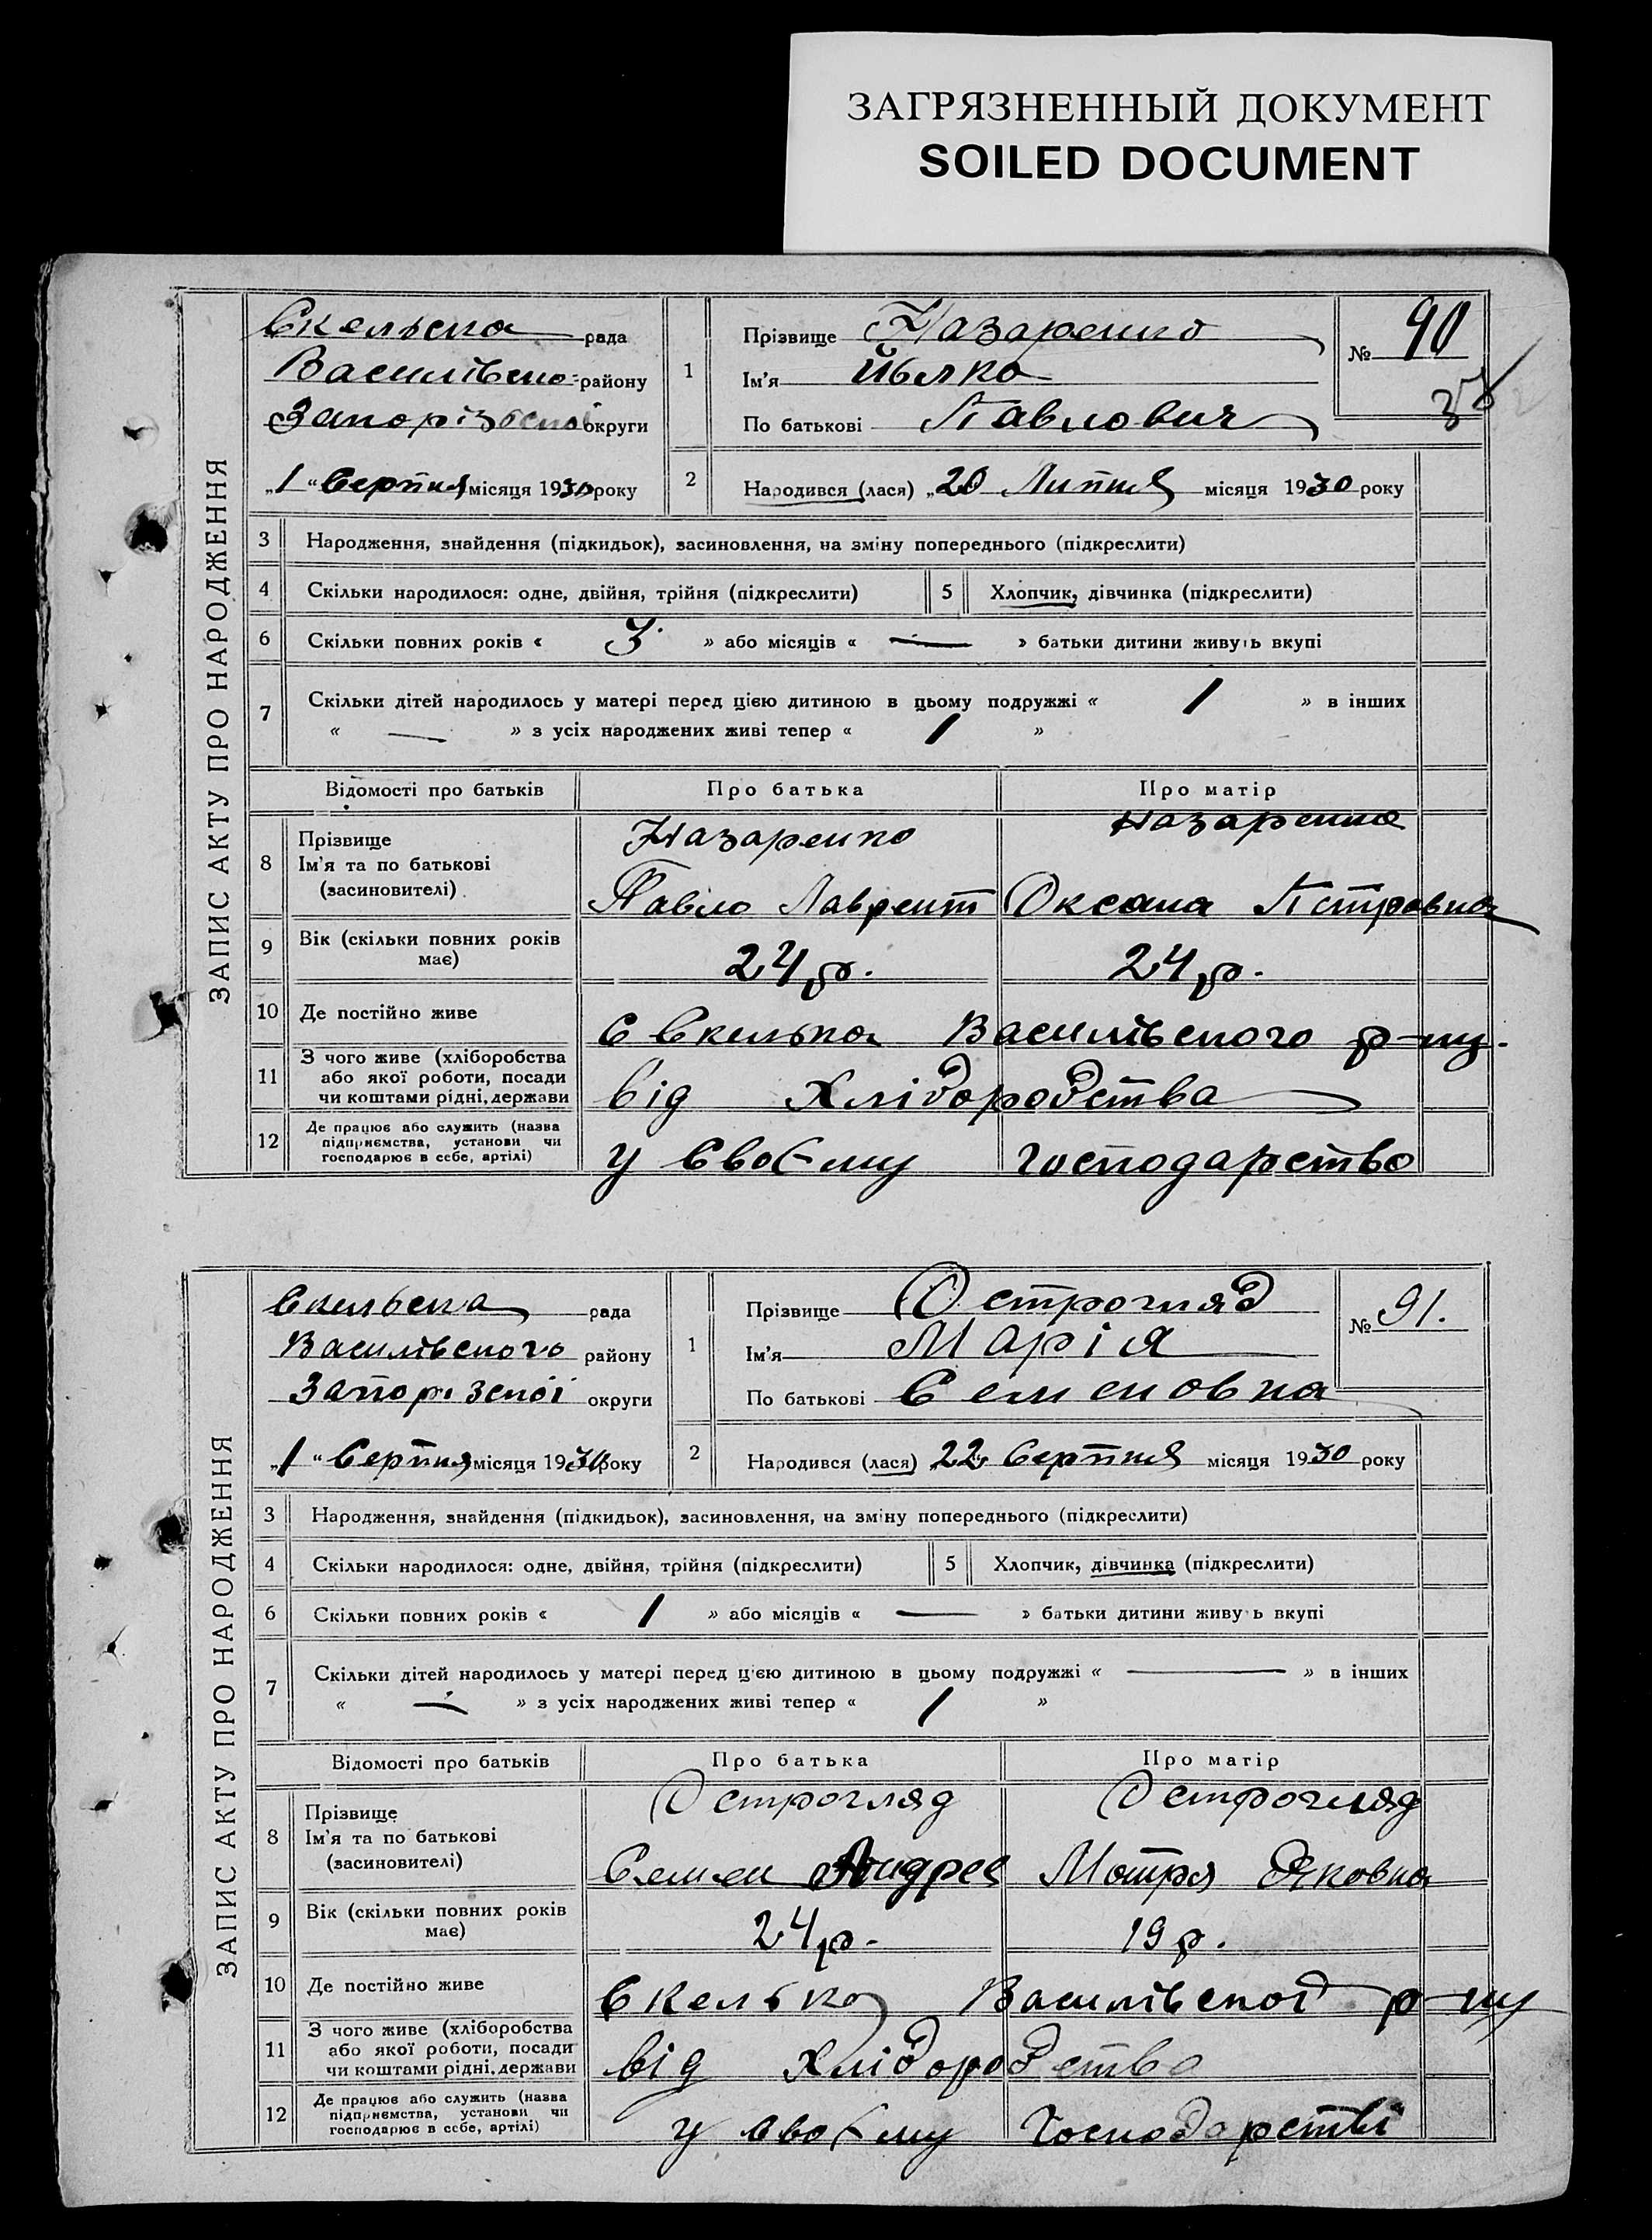 ЗАГРЯЗНЕННЫЙ ДОКУМЕНТ
SOILED DOCUMENT
ЗАПИС АКТУ ПРО НАРОДЖЕННЯ
Скельська рада
Василівсько- району
Запорізської округи
„1“ Серпня місяця 1930 року
1
Прізвище Назаренко
Ім'я
По батькові Павлович
№ 90
2
Народився (лася) „20 Липня місяця 1930 року
3 Народження, знайдення (підкидьок), засиновлення, на зміну попереднього (підкреслити)
4 Скільки народилося: одне, двійня, трійня (підкреслити) 5 Хлопчик, дівчинка (підкреслити)
6 Скільки повних років « 3 » або місяців « — » батьки дитини живуть вкупі
7 Скільки дітей народилось у матері перед цією дитиною в цьому подружжі « 1 » в інших
« — » з усіх народжених живі тепер « 1 »
Відомості про батьків Про батька Про матір
8 Прізвище
Ім'я та по батькові
(засиновителі)
Назаренко Назаренко
Павло Лаврент Оксана Петровна
9 Вік (скільки повних років має) 24 р. 24 р.
10 Де постійно живе С Скелька Василівського р-ну.
11 З чого живе (хліборобства
або якої роботи, посади
чи коштами рідні, держави
від Хліборобства
12 Де працює або служить (назва
підприємства, установи чи
господарює в себе, артілі)
у своєму господарство
ЗАПИС АКТУ ПРО НАРОДЖЕННЯ
Скельська рада
Василівського району
Запорізскої округи
„1“ Серпня місяця 1930 року
1
Прізвище Острогляд
Ім'я Марія
По батькові Семеновна
№ 91.
2
Народився (лася) „22 Серпня місяця 1930 року
3 Народження, знайдення (підкидьок), засиновлення, на зміну попереднього (підкреслити)
4 Скільки народилося: одне, двійня, трійня (підкреслити) 5 Хлопчик, дівчинка (підкреслити)
6 Скільки повних років « 1 » або місяців « — » батьки дитини живуть вкупі
7 Скільки дітей народилось у матері перед цією дитиною в цьому подружжі « — » в інших
« — » з усіх народжених живі тепер « 1 »
Відомості про батьків Про батька Про матір
8 Прізвище
Ім'я та по батькові
(засиновителі)
Острогляд Острогляд
Семен Андрее Мотря Яковна
9 Вік (скільки повних років має) 24 р. 19 р.
10 Де постійно живе Скелька Василівської р-ну
11 З чого живе (хліборобства
або якої роботи, посади
чи коштами рідні, держави
від Хліборобства
12 Де працює або служить (назва
підприємства, установи чи
господарює в себе, артілі)
у своєму Господарстві